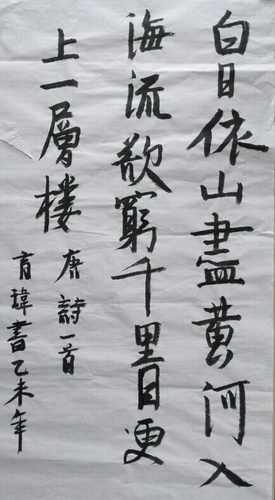 白日依山盡黄河入
海流欲窮千里目更
上一層樓
唐詩一首
育瑋書乙未年